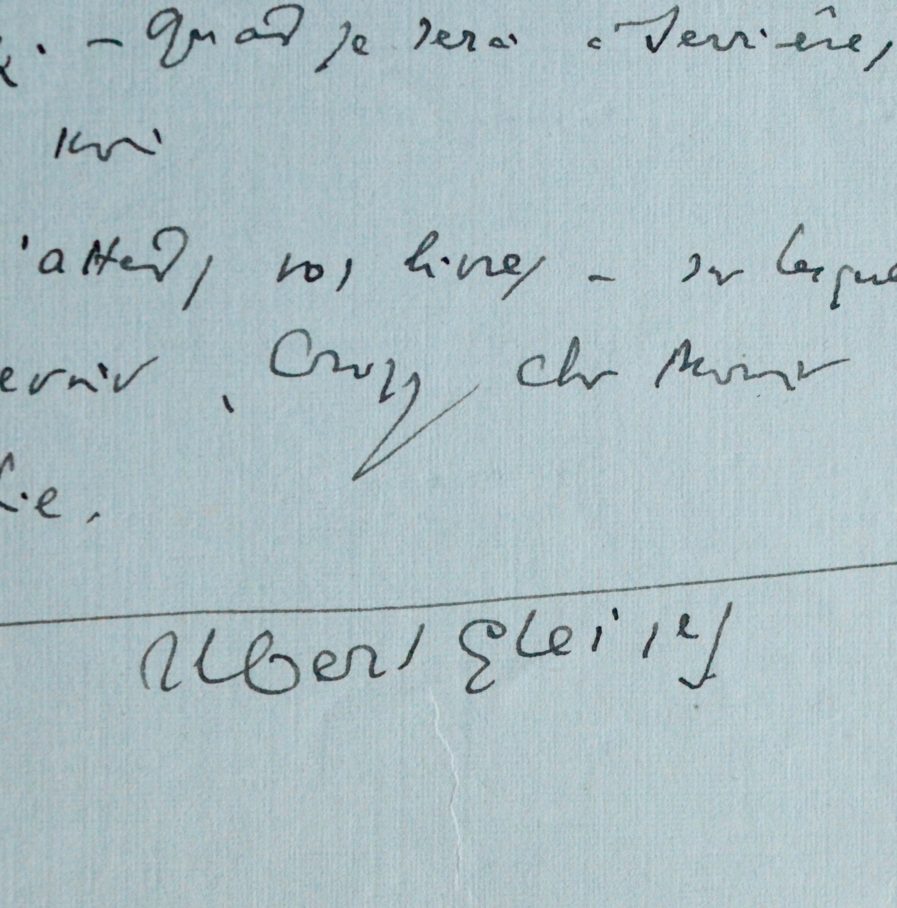 . – Quand je serai à Serrières,
moi
'attends vos livres – sur lesque
Croyez cher Monsieur
Albert Gleizes